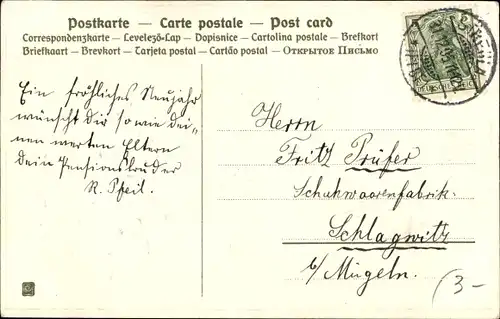 Postkarte — Carte postale — Post card
Correspondenzkarte — Levelező-Lap — Dopisnice — Cartolina postale — Brefkort
Briefkaart — Brevkort — Tarjeta postal — Cartão postal — Открытое Письмо
Ein fröhliches Neujahr
wünscht dir sowie dei=
nen werten Eltern
Dein Pensionsbruder
R. Pfeil.
5
Herrn
Fritz Prüfer
Schuhwaarenfabrik.
Schlagwitz
b/ Mügeln.
3-